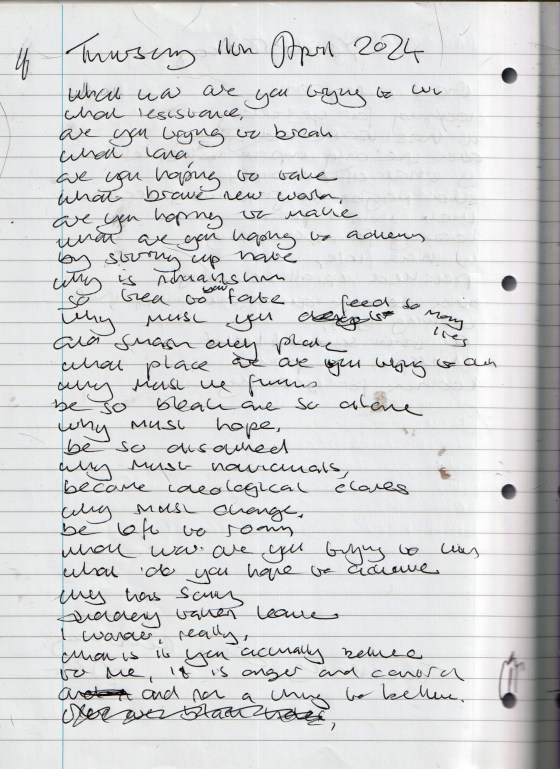 Thursday 11th April 2024
what war are you trying to win
what resistance,
are you trying to break
what land
are you hoping to take
what brave new world,
are you hoping to make
what are you hoping to achieve
by stirring up hate
why is
so tied to your fate
why must you feed so many lies
and smash every plate
what place are you trying to own
why must
be so bleak are so alone
why must hope,
be so disowned
why must
become ideological clones
why must change,
be left to roam
what war are you trying to win
what do you hope to achieve
why has
suddenly taken leave
I wonder, really,
what is it you actually believe
to me, it is anger and control
and not a thing to believe.